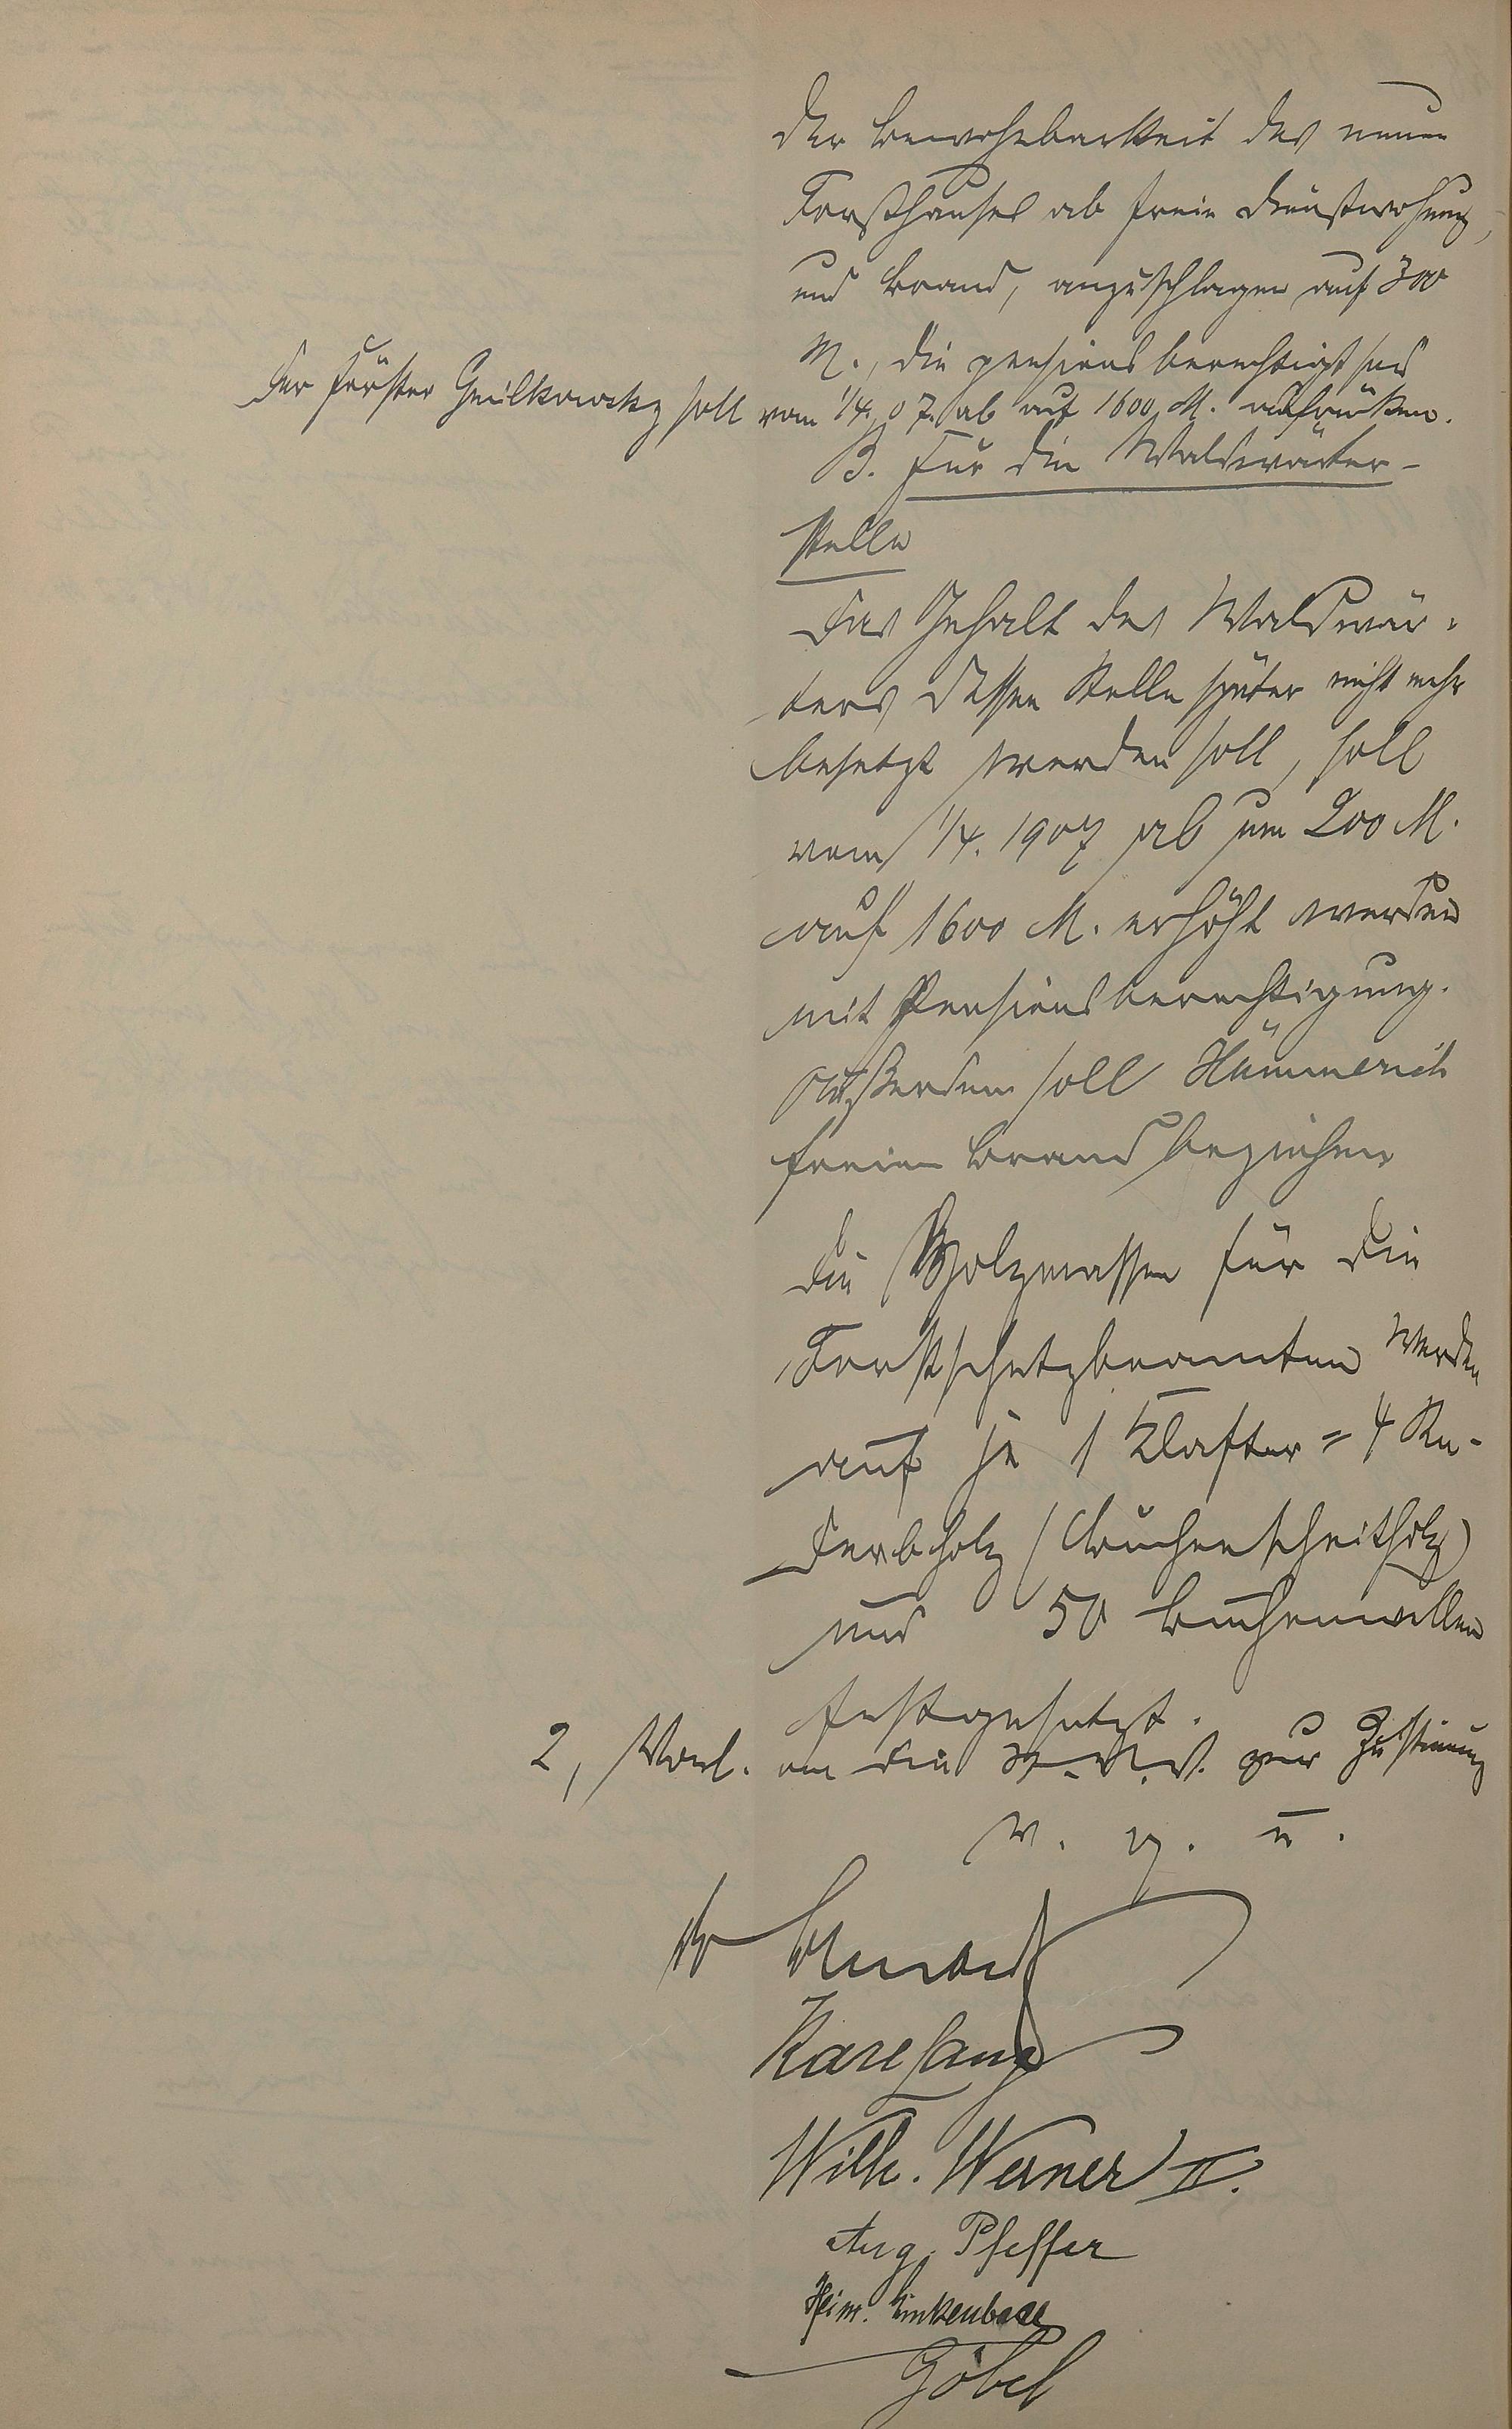 der Bewohnbarkeit des neuen
Forsthauses ab freie Dienstwohnung,
und Brand, anzuschlagen auf 300
M., die pensionsberechtigt sind
Der Förster soll vom 1/4. 07. ab auf 1600 M. aufrücken.
B. Für die Waldwärter-
stelle
Das Gehalt des Waldwär-
ters dessen Stelle später nicht mehr
besetzt werden soll, soll
vom 1/4. 1907 ab um 200 M.
auf 1600 M. erhöht werden
mit Pensionsberechtigung.
Außerdem soll Hämmerich
freien Brand beziehen
Die Holzmassen für die
Forstschutzbeamten werden
auf je 1 Klafter = 4 Rm.
Derbholz (Buchenscheitholz)
und 50 Buchenwellen
festgesetzt.
2, Vorl. an die St. V. V. zur Zustimmung
v. g. u.
Karl Lang
Wilh. Werner II.
Aug. Pfeffer
Göbel